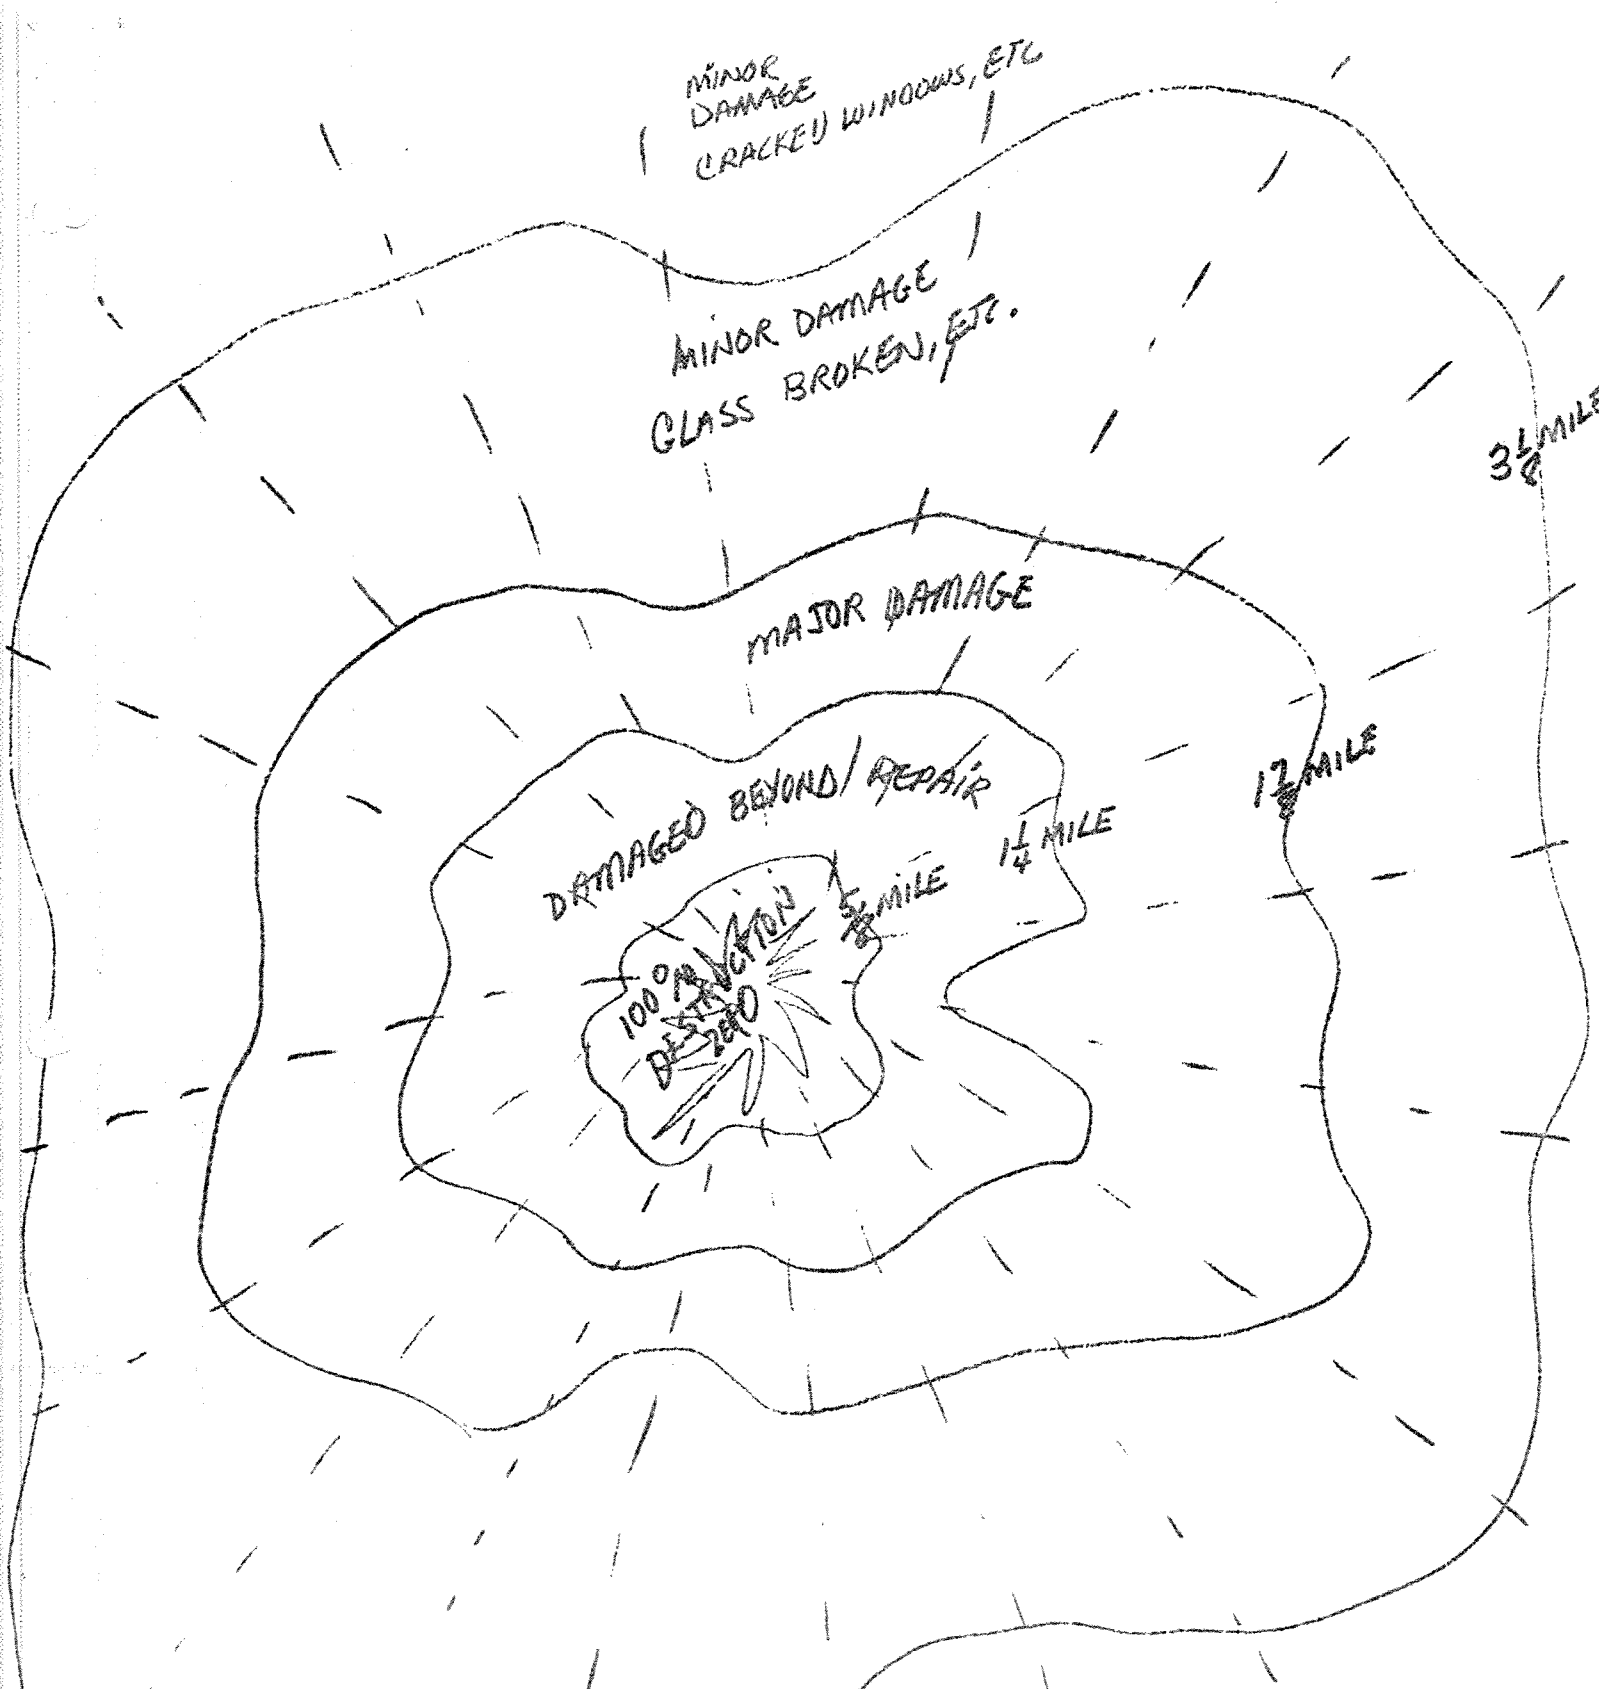 MINOR
DAMAGE
CRACKED WINDOWS, ETC
MINOR DAMAGE
GLASS BROKEN, ETC.
3 1/8 MILE
MAJOR DAMAGE
1 7/8 MILE
DAMAGED BEYOND REPAIR
1 1/4 MILE
5/8 MILE
100%
DESTRUCTION
ZERO